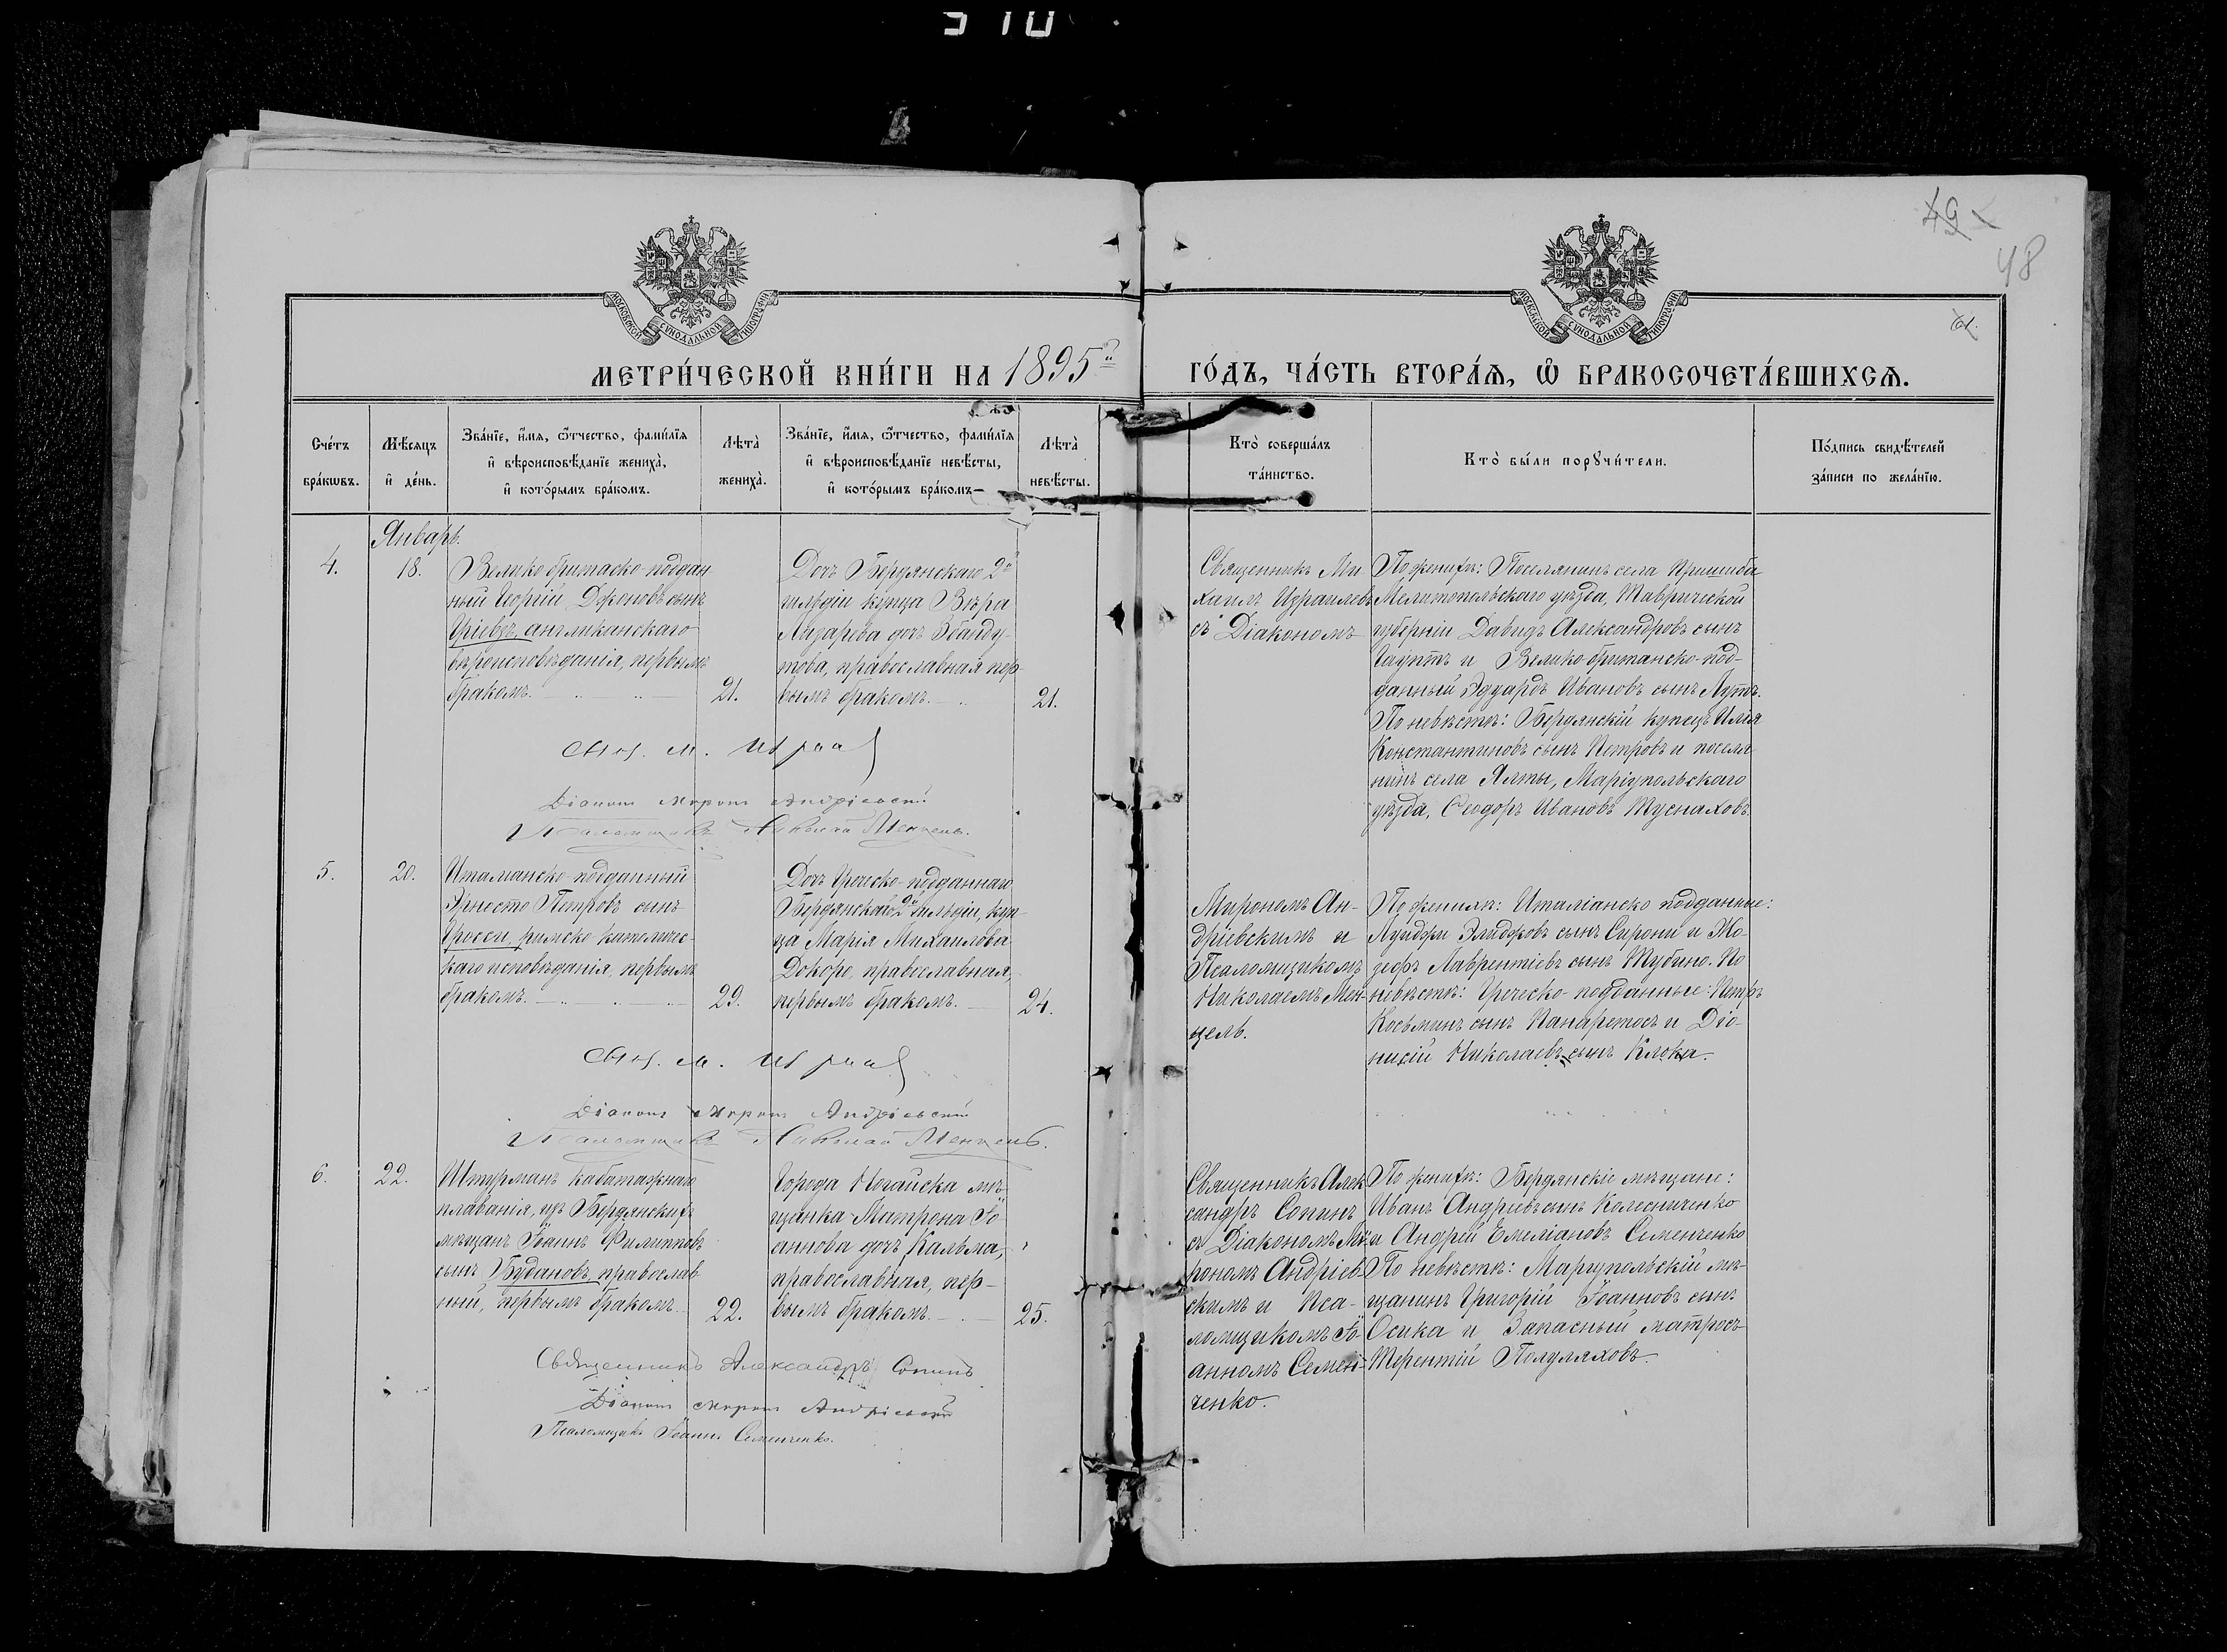 310
49
48
МОСКОВСКОЙ СѴНОДАЛЬНОЙ ТИПОГРАФІИ
МОСКОВСКОЙ СѴНОДАЛЬНОЙ ТИПОГРАФІИ
МЕТРИ́ЧЕСКОЙ КНИ́ГИ НА 1895й ГО́ДЪ, ЧА́СТЬ ВТОРА́Ѧ, Ѽ БРАКОСОЧЕТА́ВШИХСѦ.
Сче́тъ
бра́кѡвъ.
Мѣ́сѧцъ
и҆ де́нь.
Зва́нїе, и҆́мѧ, ѻ҆́тчество, фами́лїѧ
и҆ вѣроисповѣ́данїе жениха̀,
и҆ кото́рымъ бра́комъ.
Лѣта̀
жениха̀.
Зва́нїе, и҆́мѧ, ѻ҆́тчество, фами́лїѧ
и҆ вѣроисповѣ́данїе невѣ́сты,
и҆ кото́рымъ бра́комъ
Лѣта̀
невѣ́сты.
Кто̀ соверша́лъ
та́инство.
Кто̀ бы́ли порꙋчи́тели.
По́дпись свидѣ́телей
за́писи по жела́нїю.
Январь.
4.
18.
Велико-бритаско-поддан-
ный Георгій Джоновъ сынъ
Гріевзъ, англиканскаго
вѣроисповѣданія, первымъ
бракомъ.
21.
Дочь Бердянскаго 2й
гильдіи купца Вѣра
Лазарева дочь Збанду-
това, православная пер-
вымъ бракомъ.
21.
Священникъ Ми-
хаилъ Израилевъ
съ Діакономъ
По женихѣ: Поселянинъ села Пришиба
Мелитопольскаго уѣзда, Таврической
губерніи Давидъ Александровъ сынъ
Гауптъ и Велико-британско-под-
данный Эдуардъ Ивановъ сынъ Лутъ.
По невѣстѣ: Бердянскій купецъ Илія
Константиновъ сынъ Петровъ и поселя-
нинъ села Ялты, Маріупольскаго
уѣзда, Ѳеодоръ Ивановъ Туснаховъ.
Свящ. М. Израил
Діаконъ Миронъ Андріевскій
Псаломщикъ Николай Менцель.
5.
20.
Италианско-подданный
Эрнесто Петровъ сынъ
Гросси, римско-католичес-
каго исповѣданія, первымъ
бракомъ.
29.
Дочь Греческо-подданнаго
Бердянскаго 2й гильдіи, куп-
ца Марія Михаилова
Докоре, православная,
первымъ бракомъ.
24.
Мирономъ Ан-
дріевскимъ и
Псаломщикомъ
Николаемъ Мен-
цель.
По женихѣ: Италіанско подданные:
Луиджи Элиджовъ сынъ Сирони и Жо-
зефъ Лаврентіевъ сынъ Тубино. По
невѣстѣ: Греческо-подданные: Петръ
Косьминъ сынъ Канаретосъ и Діо-
нисій Николаевъ сынъ Клока.
Свящ. М. Израил
Діаконъ Миронъ Андріевскій
Псаломщикъ Николай Менцель.
6.
22.
Штурманъ каботажнаго
плаванія, изъ Бердянскихъ
мѣщанъ Іоаннъ Филипповъ
сынъ Будановъ, православ-
ный, первымъ бракомъ.
22.
Города Ногайска мѣ-
щанка Матрона Іо-
аннова дочь Кальма,
православная, пер-
вымъ бракомъ.
25.
Священникъ Алек-
сандръ Сопинъ
съ Діакономъ Ми-
рономъ Андріев-
скимъ и Пса-
ломщикомъ Іо-
анномъ Семен-
ченко.
По женихѣ: Бердянскіе мѣщане:
Иванъ Андріевъ сынъ Колесниченко
и Андрей Емеліановъ Семенченко
По невѣстѣ: Маріупольскій мѣ-
щанинъ Григорій Іоанновъ сынъ
Осика и Запасный матросъ
Терентій Полуляховъ.
Священникъ Александръ Сопинъ
Діаконъ Миронъ Андріевскій
Псаломщикъ Іоаннъ Семенченко.